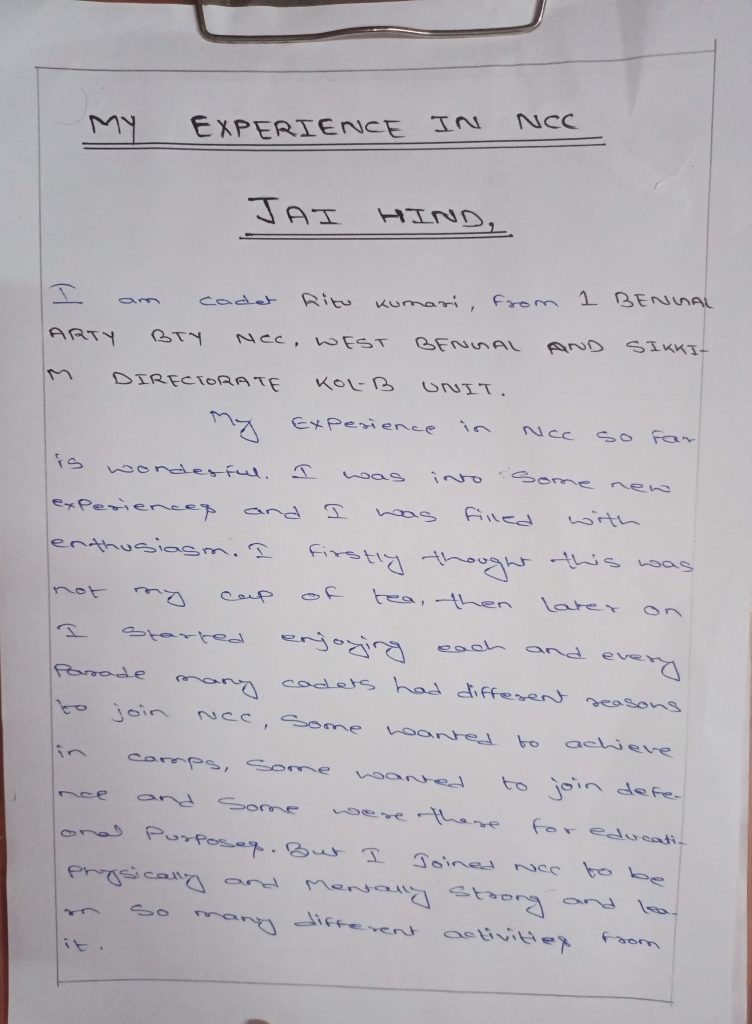 MY EXPERIENCE IN NCC
JAI HIND,
I am cadet Ritu Kumari, from 1 BENGAL
ARTY BTY NCC, WEST BENGAL AND SIKKI-
M DIRECTORATE KOL-B UNIT.
My Experience in NCC so far
is wonderful. I was into some new
experiences and I was filled with
enthusiasm. I firstly thought this was
not my cup of tea, then later on
I started enjoying each and every
Parade many cadets had different reasons
to join NCC, some wanted to achieve
in camps, some wanted to join defe-
nce and some were there for educati-
onal Purposes. But I Joined NCC to be
Physically and Mentally strong and lea-
rn so many different activities from
it.